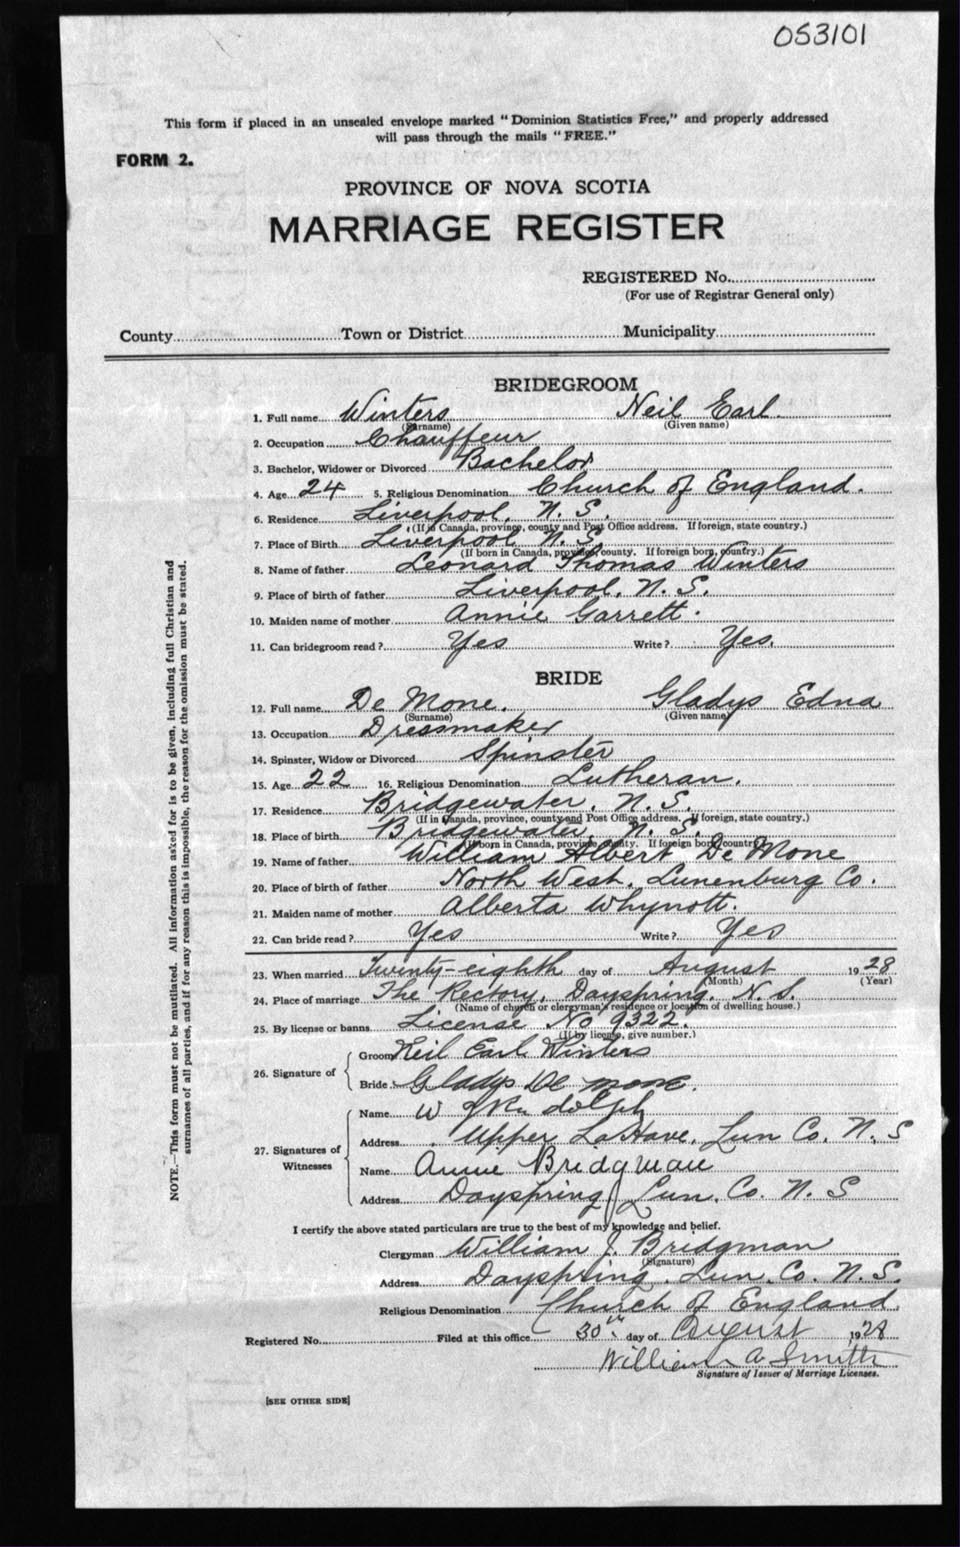 053101
This form if placed in an unsealed envelope marked "Dominion Statistics Free," and properly addressed
will pass through the mails "FREE."
FORM 2.
PROVINCE OF NOVA SCOTIA
MARRIAGE REGISTER
REGISTERED No.
(For use of Registrar General only)
County Town or District Municipality
BRIDEGROOM
1. Full name Winters Neil Earl
(Surname) (Given name)
2. Occupation Chauffeur
3. Bachelor, Widower or Divorced Bachelor
4. Age 24 5. Religious Denomination Church of England.
6. Residence Liverpool, N. S.
(If in Canada, province, county and Post Office address. If foreign, state country.)
7. Place of Birth Liverpool N. S.
(If born in Canada, province, county. If foreign born, country.)
8. Name of father Leonard Thomas Winters
9. Place of birth of father Liverpool, N. S.
10. Maiden name of mother Annie Garrett.
11. Can bridegroom read? Yes Write? Yes.
BRIDE
12. Full name De Mone. Gladys Edna
(Surname) (Given name)
13. Occupation Dressmaker
14. Spinster, Widow or Divorced Spinster
15. Age 22 16. Religious Denomination Lutheran.
17. Residence Bridgewater, N. S.
(If in Canada, province, county and Post Office address. If foreign, state country.)
18. Place of birth Bridgewater, N. S.
(If born in Canada, province, county. If foreign born, country.)
19. Name of father William Albert De Mone
20. Place of birth of father North West, Lunenburg Co.
21. Maiden name of mother Alberta Whynott.
22. Can bride read? Yes Write? Yes
23. When married Twenty-eighth day of August 1928
(Month) (Year)
24. Place of marriage The Rectory, Dayspring, N. S.
(Name of church or clergyman's residence or location of dwelling house.)
25. By license or banns License No 9322.
(If by license, give number.)
26. Signature of
Groom Neil Earl Winters
Bride Gladys De mone.
27. Signatures of Witnesses
Name W
Address Upper LaHave, Lun Co. N. S
Name Annie Bridgman
Address Dayspring Lun. Co. N. S
I certify the above stated particulars are true to the best of my knowledge and belief.
Clergyman William J. Bridgman
(Signature)
Address Dayspring, Lun. Co. N. S.
Religious Denomination Church of England
Registered No. Filed at this office 30th day of August 1928
William A Smith
Signature of Issuer of Marriage Licenses.
[SEE OTHER SIDE]
NOTE.—This form must not be mutilated. All information asked for is to be given, including full Christian and
surnames of all parties, and if for any reason this is impossible, the reason for the omission must be stated.